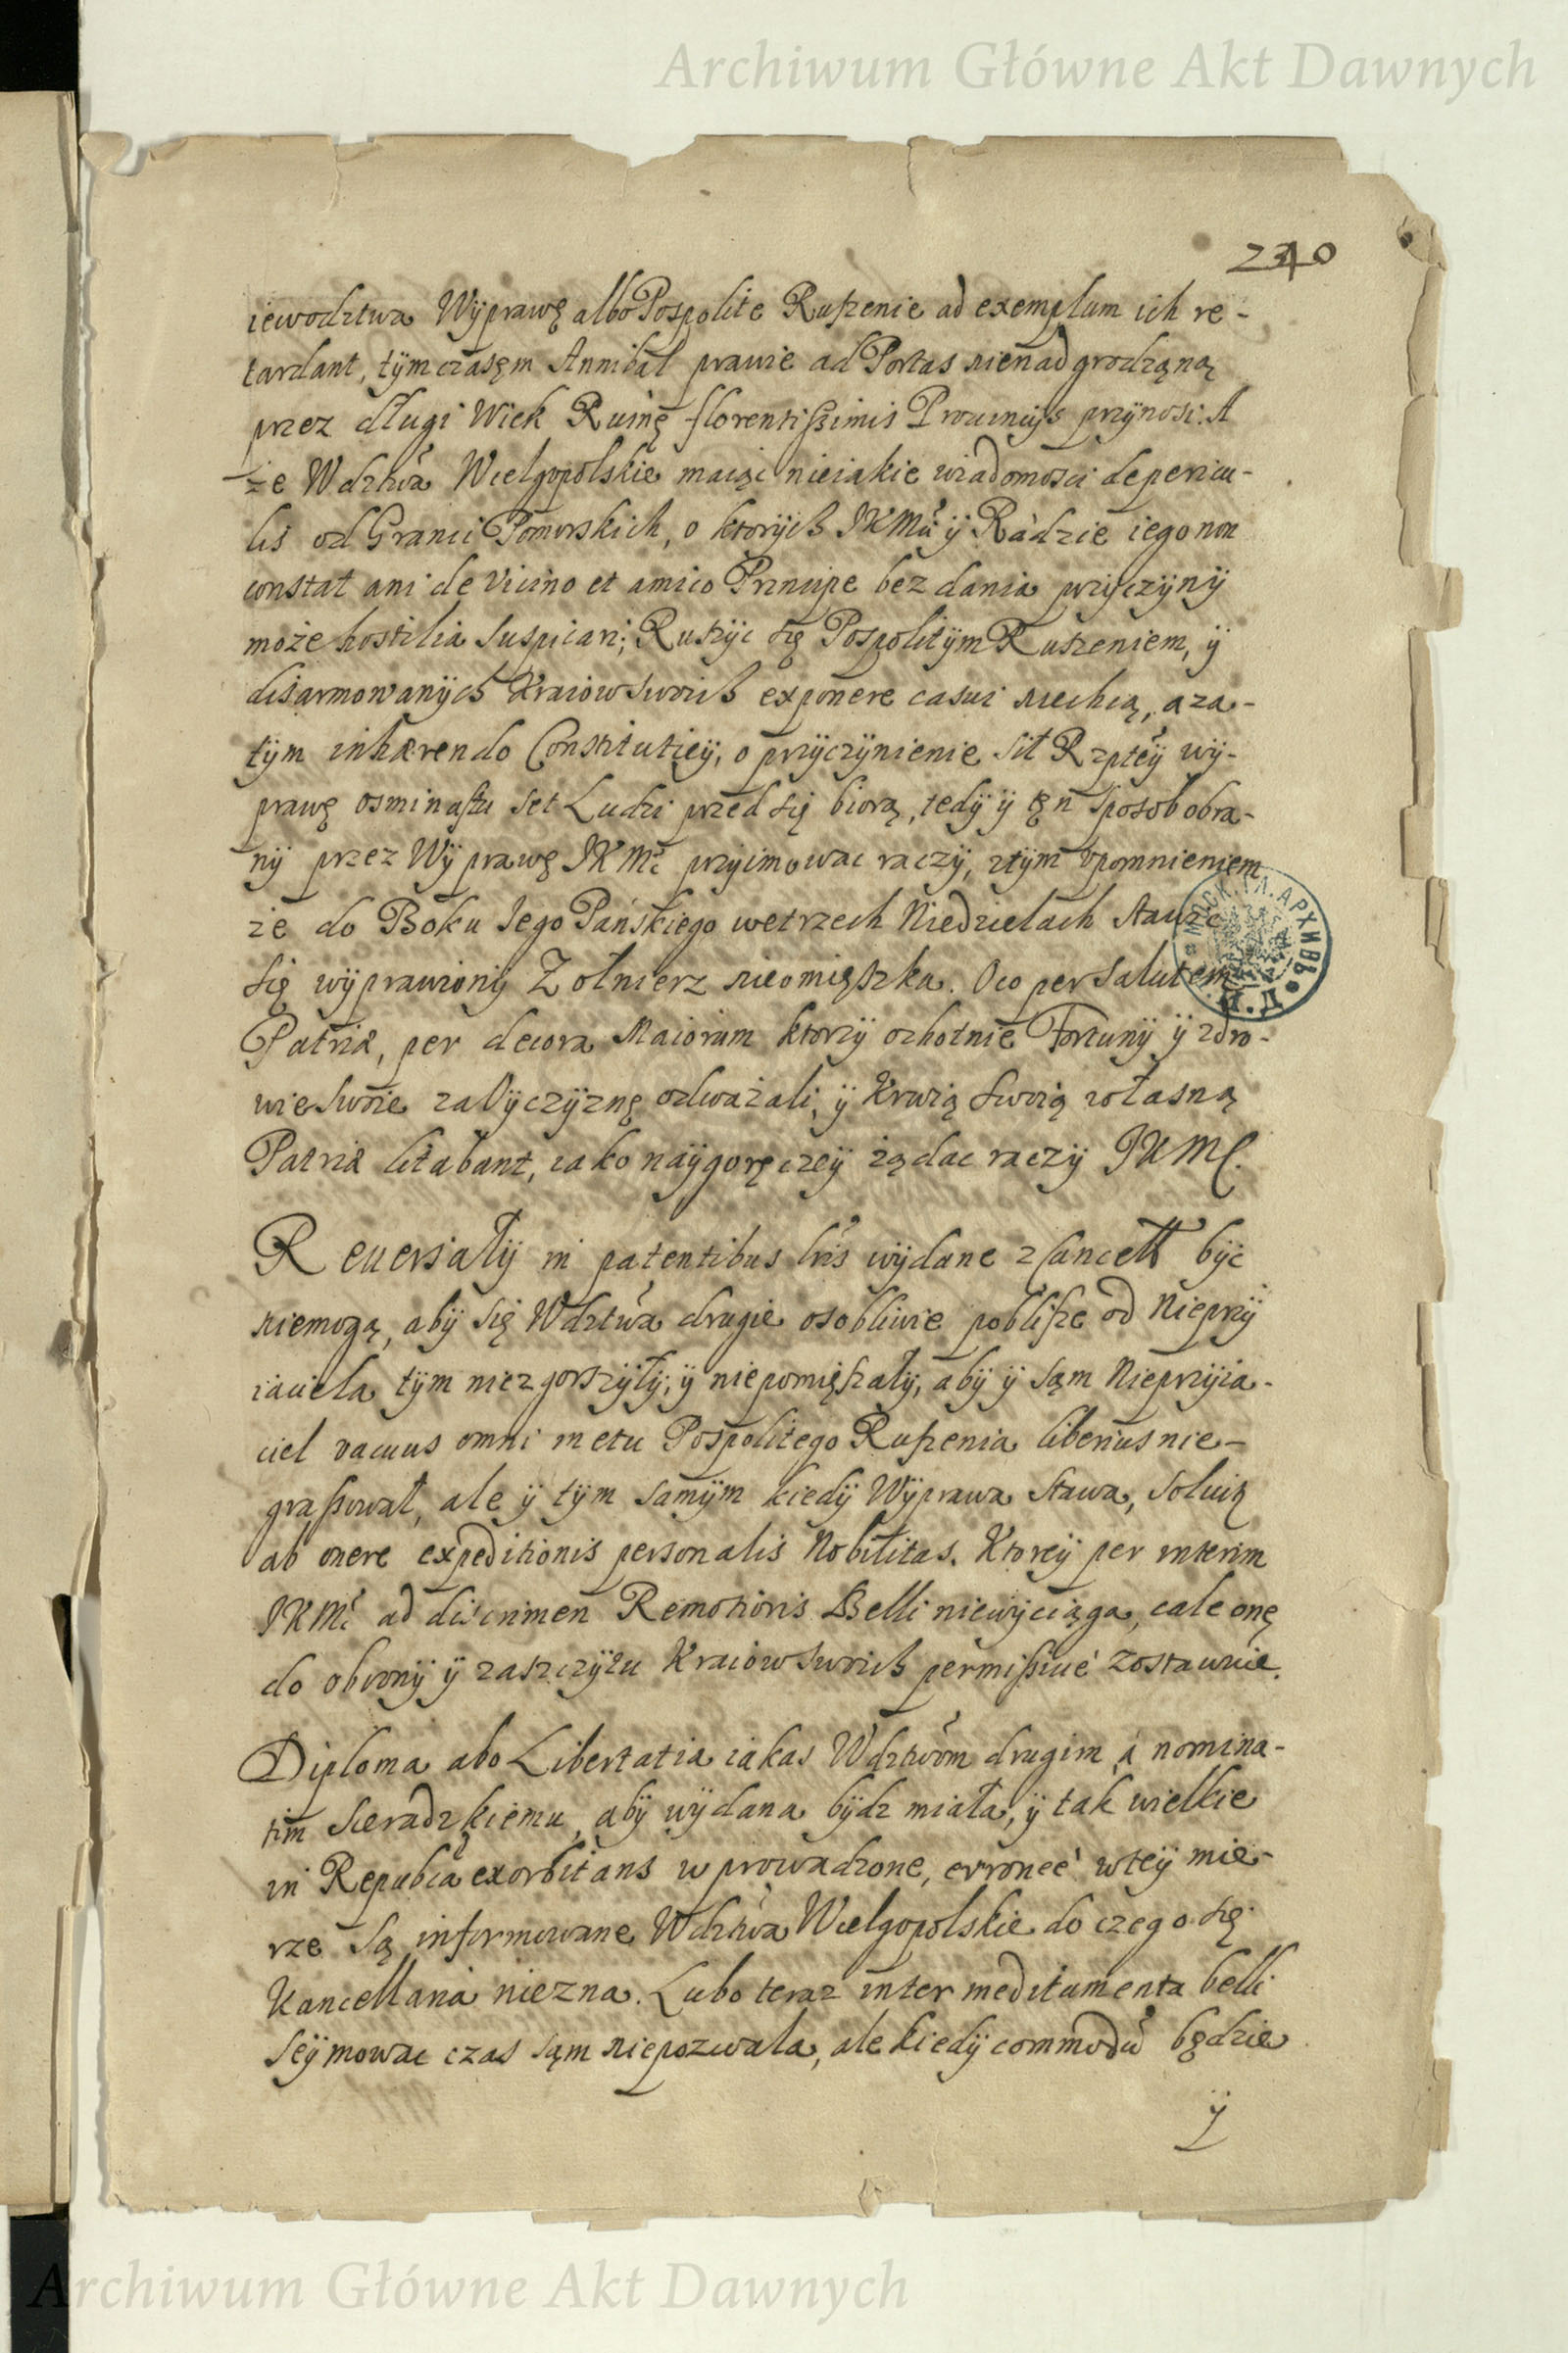 Archiwum Główne Akt Dawnych
240
iewodztwa Wyprawę albo Pospolite Ruszenie ad exemplum ich re-
tardant, tym czasęm Annibal prawie ad Portas nienadgrodząną
przez długi Wiek Ruinę florentissimis Prouincijs przynosi. A
że Wdztwa Wielgopolskie maiąc nieiakie wiadomosci de pericu-
lis od Granic Pomorskich, o ktorych IKMci y Radzie iego non
constat ani de vicino et amico Principe bez dania przyczyny
może hostilia suspicari; Ruszyc się Pospolitym Ruszeniem, y
disarmowanych Kraiow swoich exponere casui niechcą, a za-
tym inhærendo Constitutiey, o przyczynienie sił Rzptey wy-
prawę osminastu set Ludzi przed się biorą, tedy y tęn sposob obra-
ny przez Wyprawę IKMc przyimowac raczy, ztym vpomnieniem
że do Boku Jego Pańskiego wetrzech Niedzielach stawic
się wyprawiony Zołnierz nieomięszka. Oco per salutem
Patriæ, per decora Maiorum ktorzy ochotnie Fortuny y zdro-
wie swoie za Oyczyznę odważali, y Krwią swoią własną
Patriæ litabant, iako naygoręczey żądac raczy JKMC.
Reuersały in patentibus lris wydane z Cancell byc
niemogą, aby się Wdztwa drugie osobliwie pobliższe od Nieprzy
iaciela tym niezgorszyły, y niepomięszały, aby y sąm Nieprzyia-
ciel vacuus omni metu Pospolitego Ruszenia liberius nie-
grassował, ale y tym samym kiedy Wyprawa stawa, soluitur
ab onere expeditionis personalis Nobilitas. Ktorey per interim
IKMc ad discrimen Remotioris Belli niewyciąga, cale onę
do obrony y zaszczytu Kraiow swoich permissiuè zostawuie.
Diploma abo Libertatia iakas Wdztwom drugim á nomina-
tim Sieradzkiemu, aby wydana bydz miała, y tak wielkie
in Republca exorbitans wprowadzone, erroneè wtey mie-
rze są informowane Wdztwa Wielgopolskie do czego się
Kancellaria niezna. Lubo teraz inter meditamenta belli
Seymowac czas sąm niepozwala, ale kiedy commodu będzie
y
Archiwum Główne Akt Dawnych